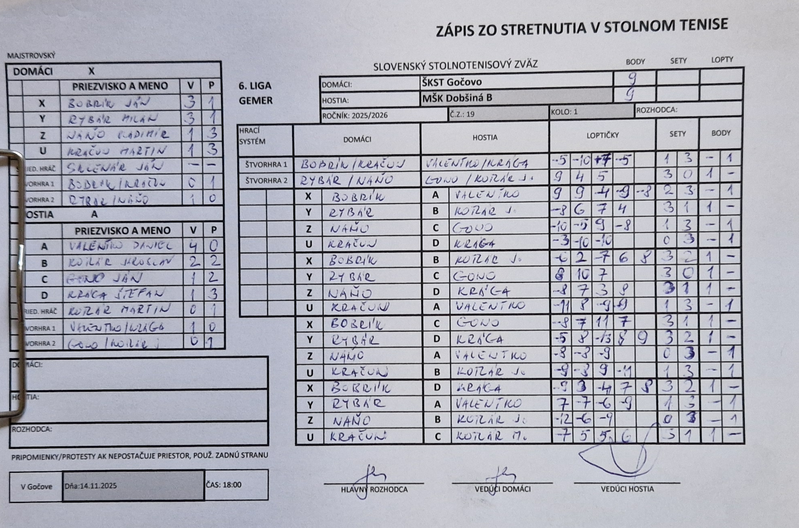 ZÁPIS ZO STRETNUTIA V STOLNOM TENISE
MAJSTROVSKÝ
SLOVENSKÝ STOLNOTENISOVÝ ZVÄZ
BODY SETY LOPTY
DOMÁCI X
6. LIGA
GEMER
DOMÁCI: ŠKST Gočovo 9
HOSTIA: MŠK Dobšiná B 9
ROČNÍK: 2025/2026 Č.Z.: 19 KOLO: 1 ROZHODCA:
PRIEZVISKO A MENO V P
X BOBRÍK JÁN 3 1
Y RYBÁR MILAN 3 1
Z NAŇO VLADIMÍR 1 3
U KRAČUN MARTIN 1 3
RIED. HRÁČ SKLENÁR JÁN – –
VORHRA 1 BOBRÍK/KRAČUN 0 1
VORHRA 2 RYBÁR/NAŇO 1 0
OSTIA A
PRIEZVISKO A MENO V P
A VALENTKO DANIEL 4 0
B KOTLÁR JAROSLAV 2 2
C GONO JÁN 1 2
D KRÁGA ŠTEFAN 1 3
RIED. HRÁČ KOTLÁR MARTIN 0 1
VORHRA 1 VALENTKO/KRÁGA 1 0
VORHRA 2 GONO/KOTLÁR J. 0 1
HRACÍ SYSTÉM DOMÁCI HOSTIA LOPTIČKY SETY BODY
ŠTVORHRA 1 BOBRÍK/KRAČUN VALENTKO/KRÁGA -5 -10 +7 -5 1 3 – 1
ŠTVORHRA 2 RYBÁR/NAŇO GONO/KOTLÁR J. 9 4 5 3 0 1 –
X BOBRÍK A VALENTKO 9 9 -4 -9 -8 2 3 – 1
Y RYBÁR B KOTLÁR J. -8 6 7 4 3 1 1 –
Z NAŇO C GONO -10 -5 9 -8 1 3 – 1
U KRAČUN D KRÁGA -3 -10 -10 0 3 – 1
X BOBRÍK B KOTLÁR J. -6 2 -7 6 8 3 2 1 –
Y RYBÁR C GONO 8 10 7 3 0 1 –
Z NAŇO D KRÁGA -8 7 3 8 3 1 1 –
U KRAČUN A VALENTKO -11 8 -9 1 3 – 1
X BOBRÍK C GONO -8 7 11 7 3 1 1 –
Y RYBÁR D KRÁGA -5 8 -13 8 9 3 2 1 –
Z NAŇO A VALENTKO -8 -8 -9 0 3 – 1
U KRAČUN B KOTLÁR J. -9 -8 9 -11 1 3 – 1
X BOBRÍK D KRÁGA -9 3 -4 7 8 3 2 1 –
Y RYBÁR A VALENTKO 7 -7 -6 -9 1 3 – 1
Z NAŇO B KOTLÁR J. -12 -6 -9 0 3 – 1
U KRAČUN C KOTLÁR M. -7 5 5 6 3 1 1 –
DOMÁCI:
HOSTIA:
ROZHODCA:
PRIPOMIENKY/PROTESTY AK NEPOSTAČUJE PRIESTOR, POUŽ. ZADNÚ STRANU
V Gočove Dňa:14.11.2025 ČAS: 18:00
HLAVNÝ ROZHODCA VEDÚCI DOMÁCI VEDÚCI HOSTIA